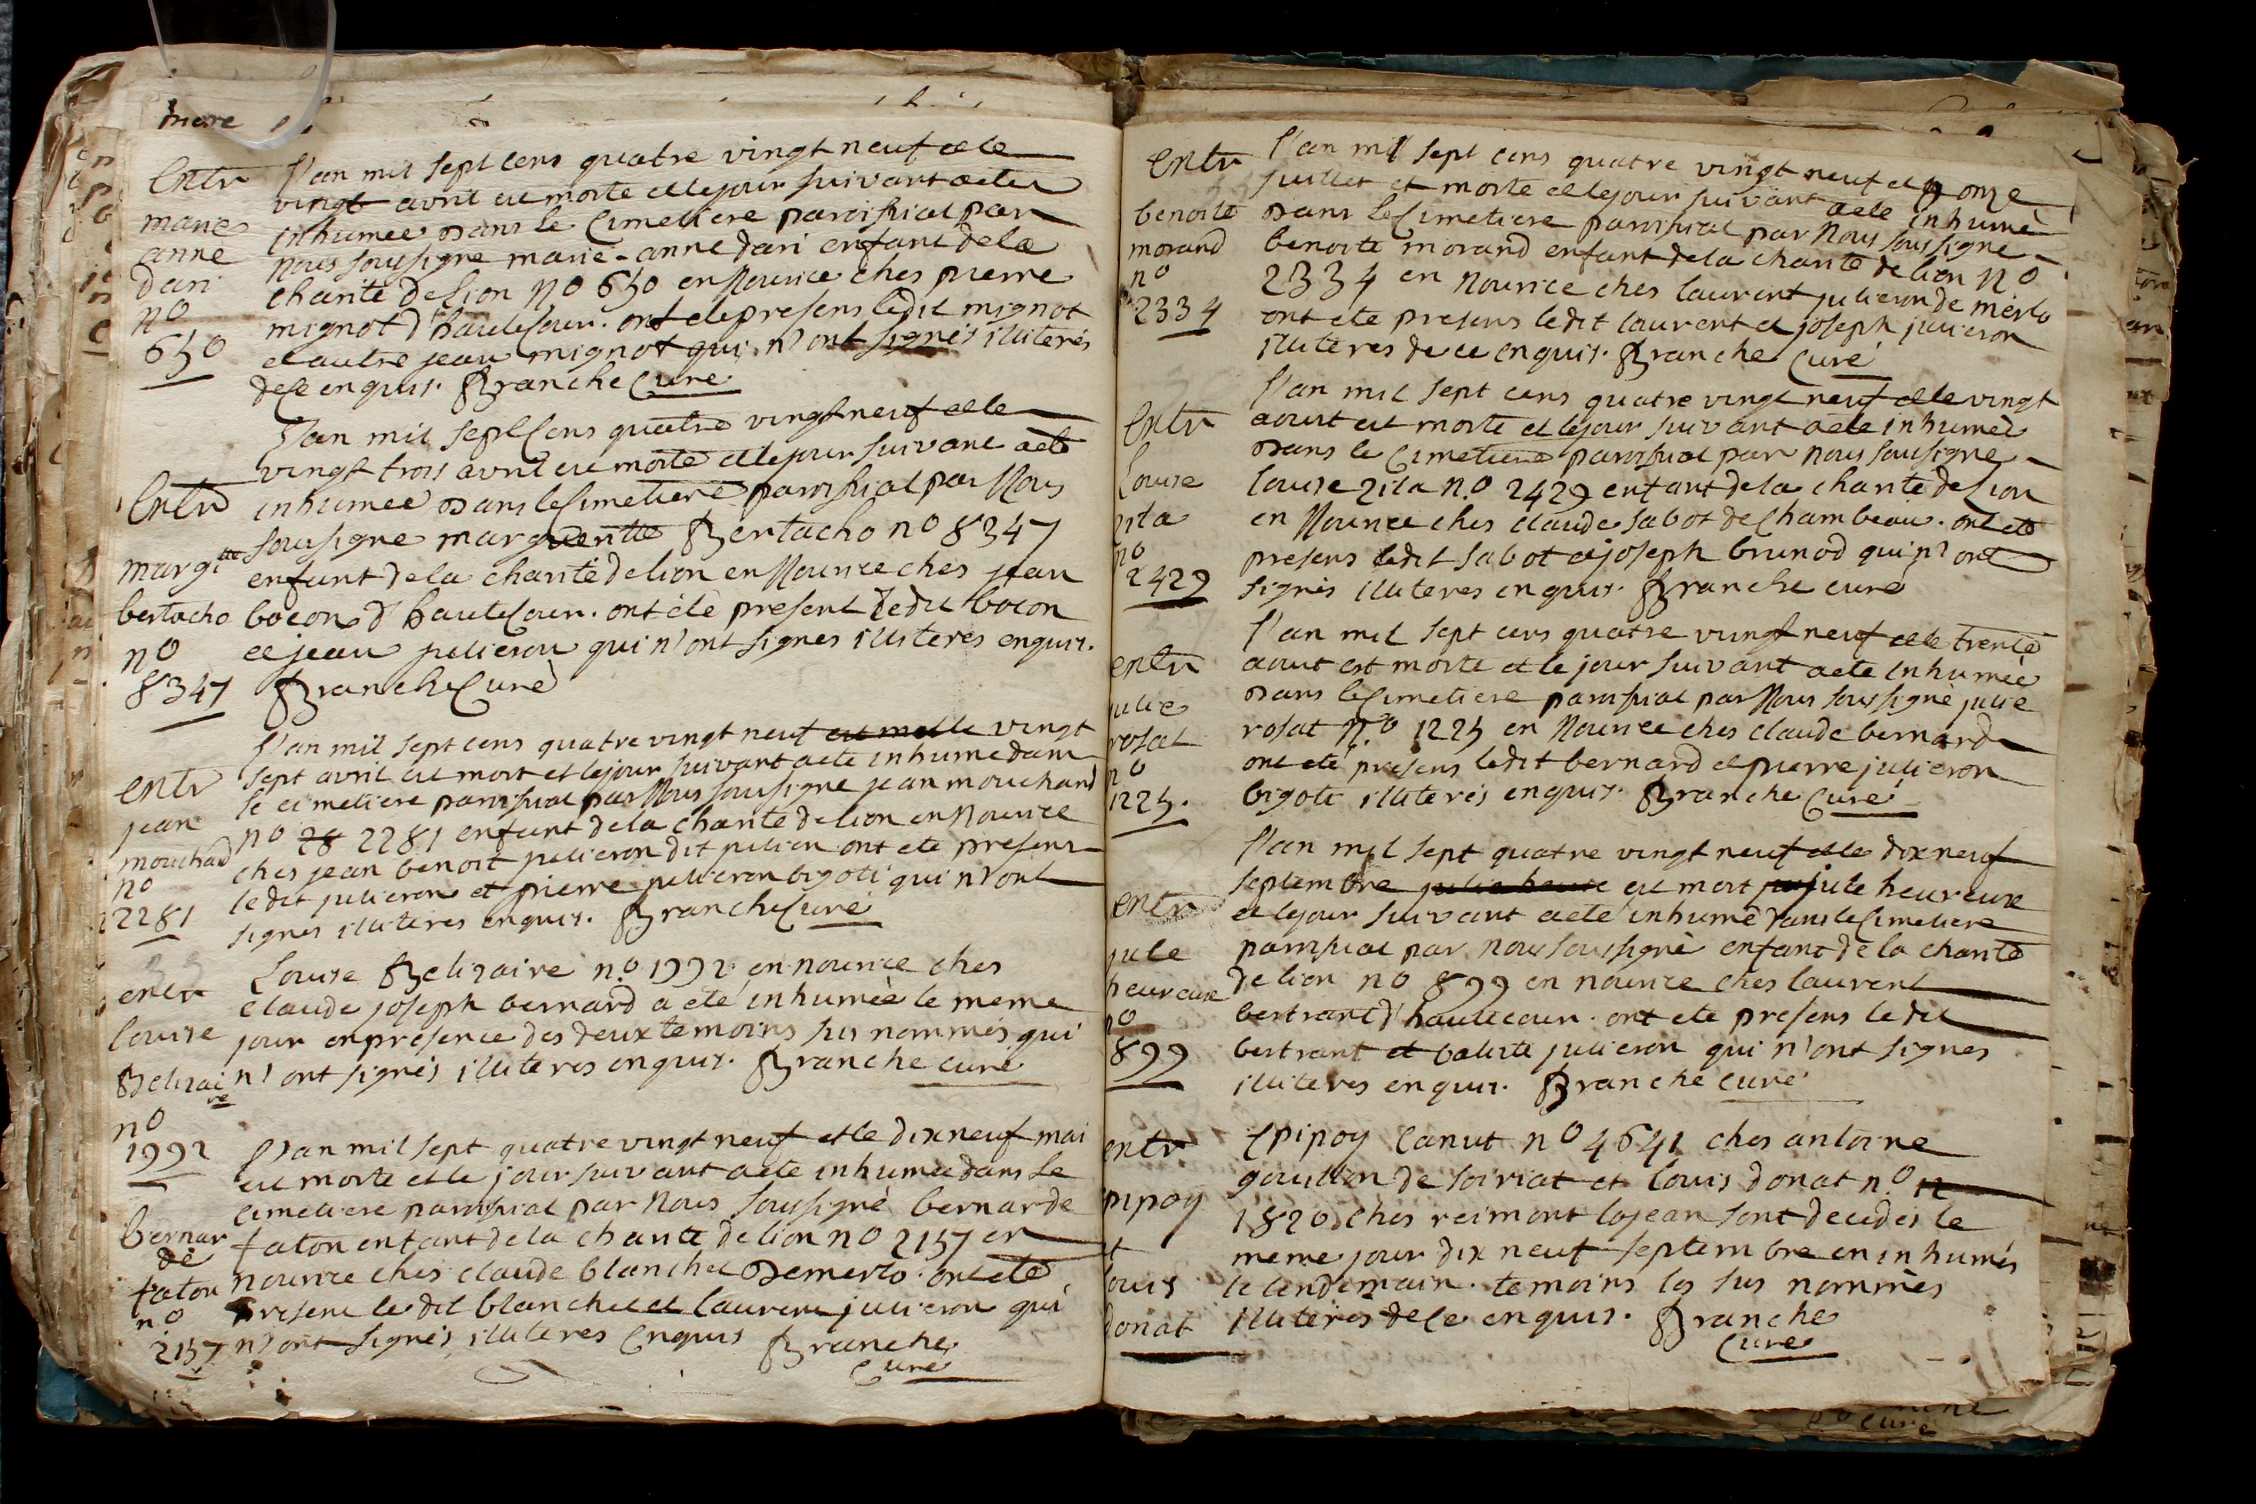 entr
marie
anne
dari
no
650
l'an mil sept cens quatre vingt neuf et le
vingt avril est morte et le jour suivant a ete
inhumee dans le Cimetiere paroissial par
nous soussigné marie-anne dari enfant de la
charité de Lion no 650 en Nourice ches pierre
mignot d'hauteCour. ont ete presens ledit mignot
et autre jean mignot qui n'ont signés illiterés
de Ce enquis. Branche Curé
Entr
margtte
bertacho
no
8347
l'an mil sept Cens quatre vingt neuf et le
vingt trois avril est morte et le jour suivant a ete
inhumee dans le Cimetiere paroissial par Nous
soussigné margueritte Bertacho no 8347
enfant de la charité de lion en Nourice ches jean
bocon d'hauteCour. ont été present ledit bocon
et jean julieron qui n'ont signes illiteres enquis.
Branche Curé
entr
jean
mouchard
no
2281
l'an mil sept cens quatre vingt neuf vingt
sept avril est mort et le jour suivant a ete inhume dans
le cimetiere paroissial par Nous soussigné jean mouchard
no 28 2281 enfant de la charité de lion en Nourice
ches jean benoit julieron dit julien ont ete presens
ledit julieron et pierre julieron bigoti qui n'ont
signes illiteres enquis. Branche Curé
entr
louise
Belizai
re
no
1992
Louise Belizaire no 1992 en nourice ches
claude joseph bernard a eté inhumée le meme
jour en presence des deux temoins sus nommés qui
n'ont signés illiteres enquis. Branche curé
bernar
de
faton
no
2157
l'an mil sept quatre vingt neuf et le dix neuf mai
est morte et le jour suivant a ete inhumée dans le
cimetiere paroissial par Nous soussigné bernarde
faton enfant de la charité de lion no 2157 en
nourice ches claude blanchet de merlo. ont ete
present le dit blanchet et laurent julieron qui
n'ont signés illiteres Enquis Branche
Curé
entr
benoite
morand
no
2334
l'an mil sept cens quatre vingt neuf et onze
juillet est morte et le jour suivant a ete inhumé
dans le Cimetiere paroissial par Nous soussigné
benoite morand enfant de la charité de lion no
2334 en Nourice ches laurent julieron de merlo
ont ete presens ledit laurent et joseph julieron
illiteres de ce enquis. Branche Curé
Entr
Louise
zila
no
2429
l'an mil sept cens quatre vingt neuf et le vingt
aout est morte et le jour suivant a ete inhumée
dans le Cimetiere paroissial par nous soussigné
louise zila no 2429 enfant de la charité de Lion
en Nourice ches claude sabot de Chambeau. ont ete
presens ledit sabot et joseph brunod qui n'ont
signés illiteres enquis. Branche curé
entr
julie
rosat
no
1225.
l'an mil sept cens quatre vingt neuf et le trente
aout est morte et le jour suivant a ete inhumée
dans le Cimetiere paroissial par Nous soussigné julie
rosat no 1225 en Nourice ches claude bernard
ont eté presens ledit bernard et pierre julieron
bigoti illiterés enquis. Branche Curé
entr
jule
heureux
no
899
l'an mil sept quatre vingt neuf et le dix neuf
septembre est mort jule heureux
et le jour suivant a ete inhumé dans le Cimetiere
paroissial par nous soussigné enfant de la charité
de lion no 899 en nourice ches laurent
bertrant d'hautecour. ont ete presens le dit
bertrant et baliste julieron qui n'ont signes
illiteres enquis. Branche curé
entr
pipoy
et
louis
donat
Epipoy Canut no 4641 ches antoine
goullon de soiriat et louis donat no 12
1820 ches reimont lojean sont decedes le
meme jour dix neuf septembre en inhumés
le lendemain. temoins les sus nommés
illiterés de Ce enquis. Branche
Curé